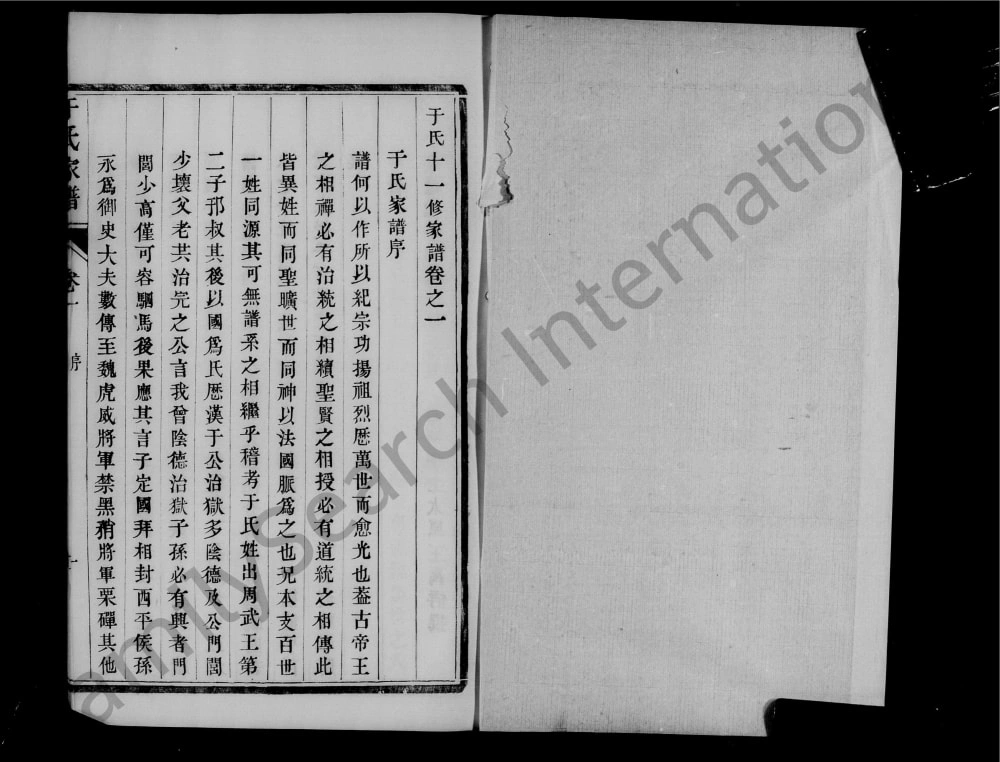 于氏十一修家譜卷之一
于氏家譜序
譜何以作所以紀宗功揚祖烈歷萬世而愈光也蓋古帝王
之相禪必有治統之相續聖賢之相授必有道統之相傳此
皆異姓而同聖曠世而同神以法國脈爲之也況本支百世
一姓同源其可無譜系之相繼乎稽考于氏姓出周武王第
二子邘叔其後以國爲氏歷漢于公治獄多陰德及公門閭
少壞父老共治完之公言我曾陰德治獄子孫必有興者門
閭少高僅可容駟馬後果應其言子定國拜相封西平侯孫
永爲御史大夫數傳至魏虎威將軍禁黑矟將軍栗磾其他
于氏家譜
卷一
序
一
FamilySearch International